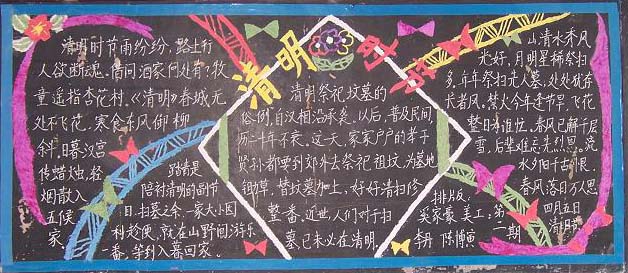 清明
清明时节雨纷纷，路上行
人欲断魂。借问酒家何处有？牧
童遥指杏花村。《清明》春城无
处不飞花，寒食东风御柳
斜。日暮汉宫
传蜡烛，轻
烟散入
五侯
家。
踏青是
陪衬清明的副节
目。扫墓之余，一家大小图
利趁便，就在山野间游乐
一番，等到入暮回家。
清明祭祀坟墓的
俗例，自汉相沿承袭。以后，普及民间，
历二千年不衰。这一天，家家户户的孝子
贤孙都要到郊外去祭祀祖坟，为墓地
锄草，替扫墓加土，好好清扫修
整一番。近世，人们对于扫
墓，已未必在清明。
山清水秀风
光好，月明星稀祭扫
多，年年祭扫先人墓，处处犹存
长者风。
今年逢节早，飞花
整日有
春风已解千层
雪，后辈难忘先烈恩。
水夕阳千古恨，
春风落日不思
四月五日
清明节
排版：
吴家豪 美工：第
李丹 陈博寅 一期